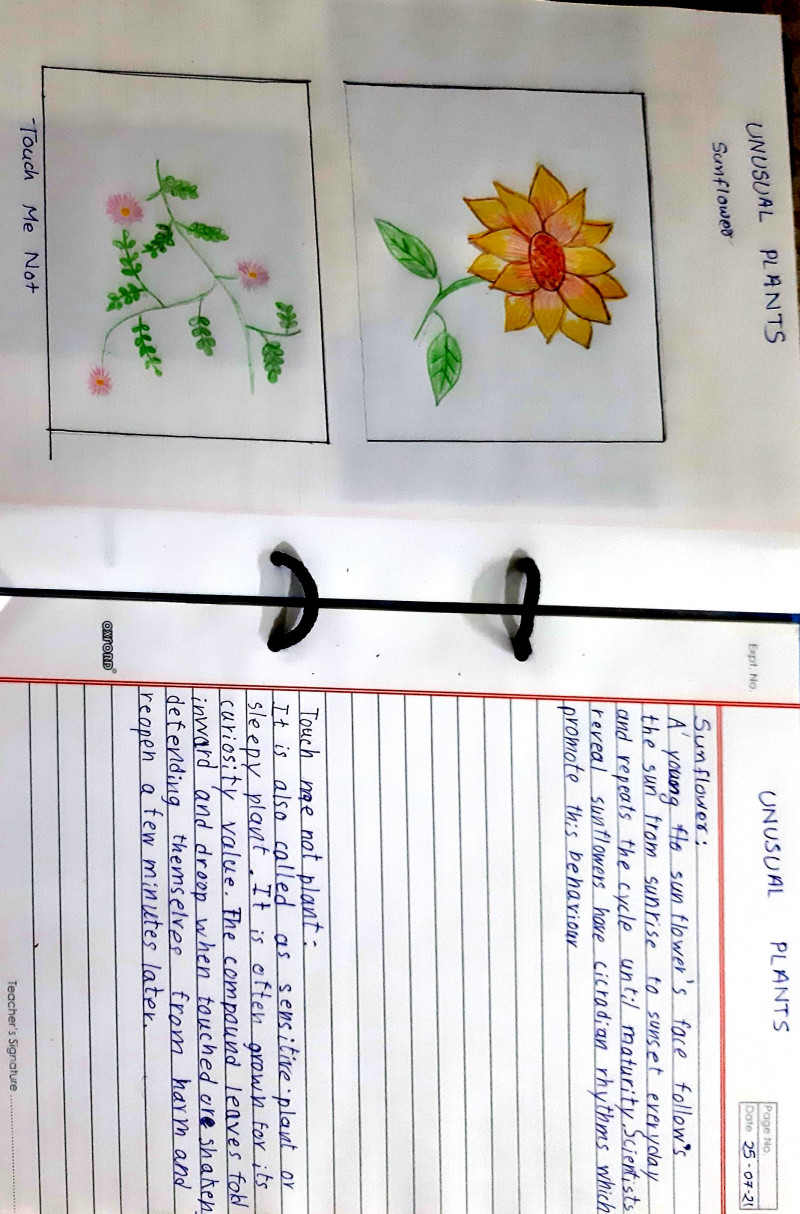 UNUSUAL PLANTS
Sunflower
Touch Me Not
Expt. No.
UNUSUAL PLANTS
Page No.
Date 25-07-21
Sunflower:
A young flo sunflower's face follow's
the sun from sunrise to sunset everyday
and repeats the cycle until maturity. Scientists
reveal sunflowers have cicradian rhythms which
promote this behaviour
Touch me not plant:-
It is also called as sensitive plant or
sleepy plant. It is often grown for its
curiosity value. The compound leaves fold
inward and droop when touched or shaken,
defending themselves from harm and
reopen a few minutes later.
OXFORD®
Teacher's Signature ................